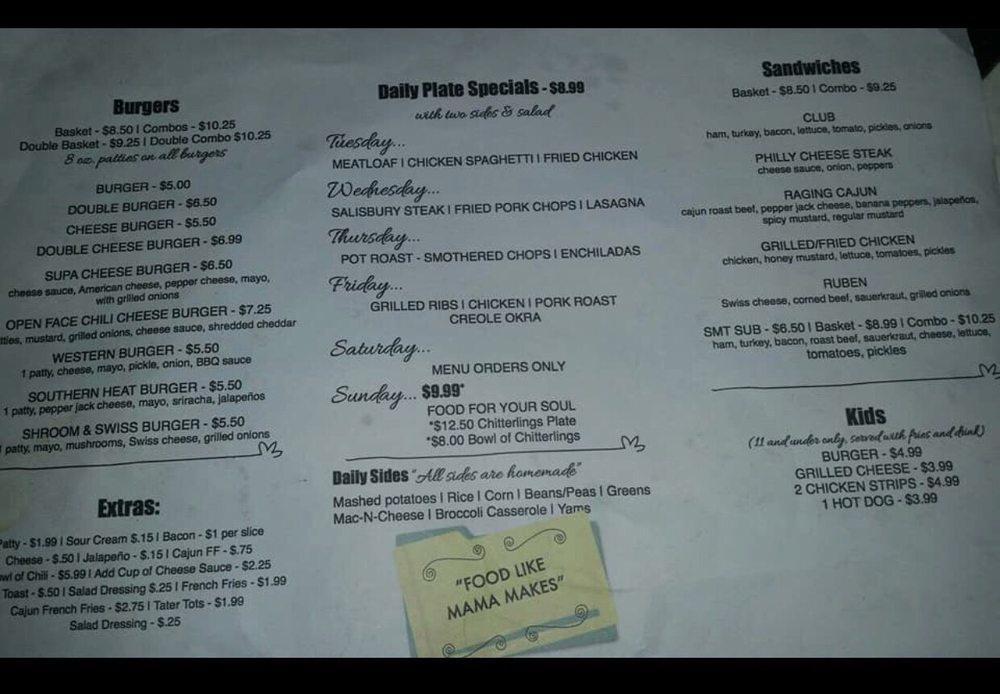 Burgers
Basket - $8.50 | Combos - $10.25
Double Basket - $9.25 | Double Combo $10.25
8 oz. patties on all burgers
BURGER - $5.00
DOUBLE BURGER - $6.50
CHEESE BURGER - $5.50
DOUBLE CHEESE BURGER - $6.99
SUPA CHEESE BURGER - $6.50
cheese sauce, American cheese, pepper cheese, mayo,
with grilled onions
OPEN FACE CHILI CHEESE BURGER - $7.25
mustard, grilled onions, cheese sauce, shredded cheddar
WESTERN BURGER - $5.50
1 patty, cheese, mayo, pickle, onion, BBQ sauce
SOUTHERN HEAT BURGER - $5.50
1 patty, pepper jack cheese, mayo, sriracha, jalapeños
SHROOM & SWISS BURGER - $5.50
patty, mayo, mushrooms, Swiss cheese, grilled onions
Extras:
Patty - $1.99 | Sour Cream $.15 | Bacon - $1 per slice
Cheese - $.50 | Jalapeño - $.15 | Cajun FF - $.75
of Chili - $5.99 | Add Cup of Cheese Sauce - $2.25
Toast - $.50 | Salad Dressing $.25 | French Fries - $1.99
Cajun French Fries - $2.75 | Tater Tots - $1.99
Salad Dressing - $.25
Daily Plate Specials - $8.99
with two sides & salad
Tuesday...
MEATLOAF | CHICKEN SPAGHETTI | FRIED CHICKEN
Wednesday...
SALISBURY STEAK | FRIED PORK CHOPS | LASAGNA
Thursday...
POT ROAST - SMOTHERED CHOPS | ENCHILADAS
Friday...
GRILLED RIBS | CHICKEN | PORK ROAST
CREOLE OKRA
Saturday...
MENU ORDERS ONLY
Sunday... $9.99*
FOOD FOR YOUR SOUL
*$12.50 Chitterlings Plate
*$8.00 Bowl of Chitterlings
Daily Sides "All sides are homemade"
Mashed potatoes | Rice | Corn | Beans/Peas | Greens
Mac-N-Cheese | Broccoli Casserole | Yams
"FOOD LIKE
MAMA MAKES"
Sandwiches
Basket - $8.50 | Combo - $9.25
CLUB
ham, turkey, bacon, lettuce, tomato, pickles, onions
PHILLY CHEESE STEAK
cheese sauce, onion, peppers
RAGING CAJUN
cajun roast beef, pepper jack cheese, banana peppers, jalapeños,
spicy mustard, regular mustard
GRILLED/FRIED CHICKEN
chicken, honey mustard, lettuce, tomatoes, pickles
RUBEN
Swiss cheese, corned beef, sauerkraut, grilled onions
SMT SUB - $6.50 | Basket - $8.99 | Combo - $10.25
ham, turkey, bacon, roast beef, sauerkraut, cheese, lettuce,
tomatoes, pickles
Kids
(11 and under only, served with fries and drink)
BURGER - $4.99
GRILLED CHEESE - $3.99
2 CHICKEN STRIPS - $4.99
1 HOT DOG - $3.99